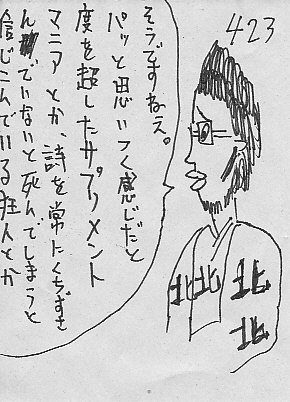 423
そうですねえ。
パッと思いつく感じだと
度を超したサプリメント
マニアとか、詩を常にくちずさ
んでいないと死んでしまうと
信じこんでいる狂人とか
北
北
北
北